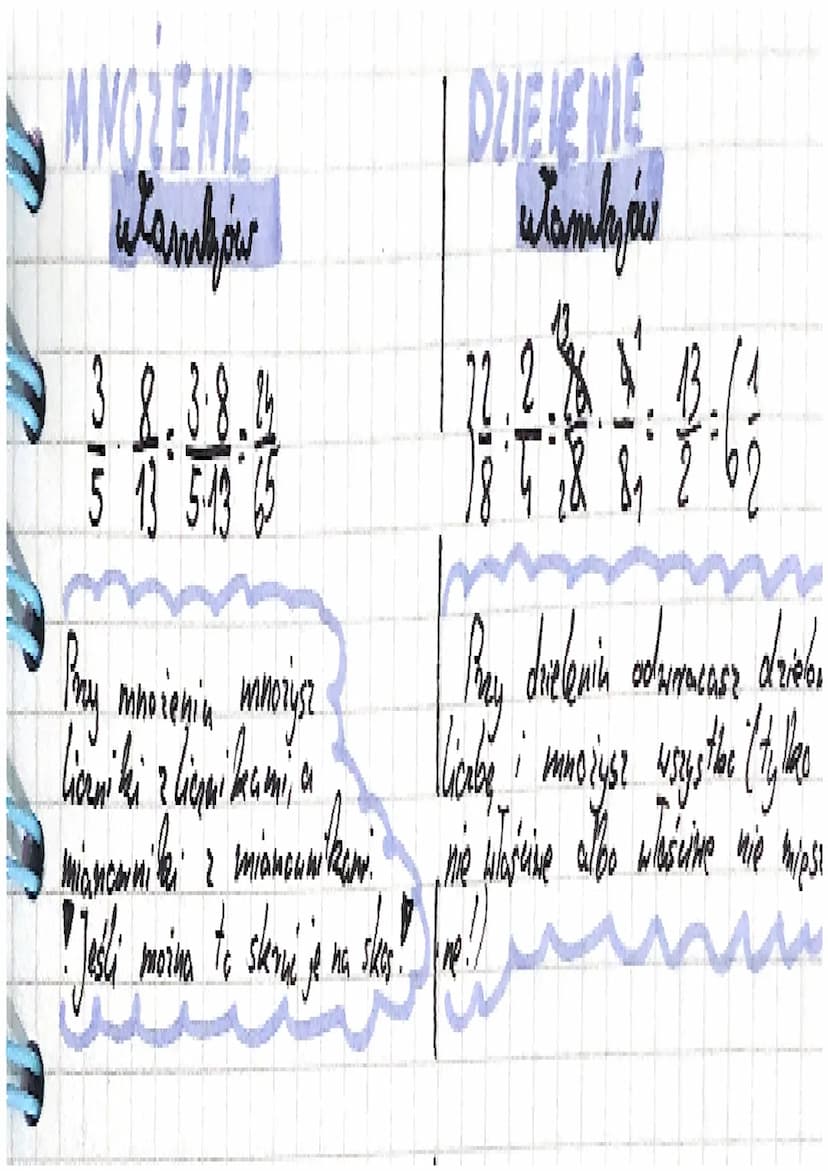 MNOŻENIE
ułamków
3/5 · 8/13 = 3·8/5·13 = 24/65
Przy mnożeniu mnożysz
liczniki z licznikami, a
mianowniki z mianownikami.
!Jeśli można to skróć je na skos!
DZIELENIE
ułamków
3 2/8 : 2/4 = 26/8 · 4/8 = 13/2 = 6 1/2
Przy dzieleniu odwracasz
liczbę i mnożysz wszystko (tylko
nie właściwe albo właściwe nie miesza
ne!)